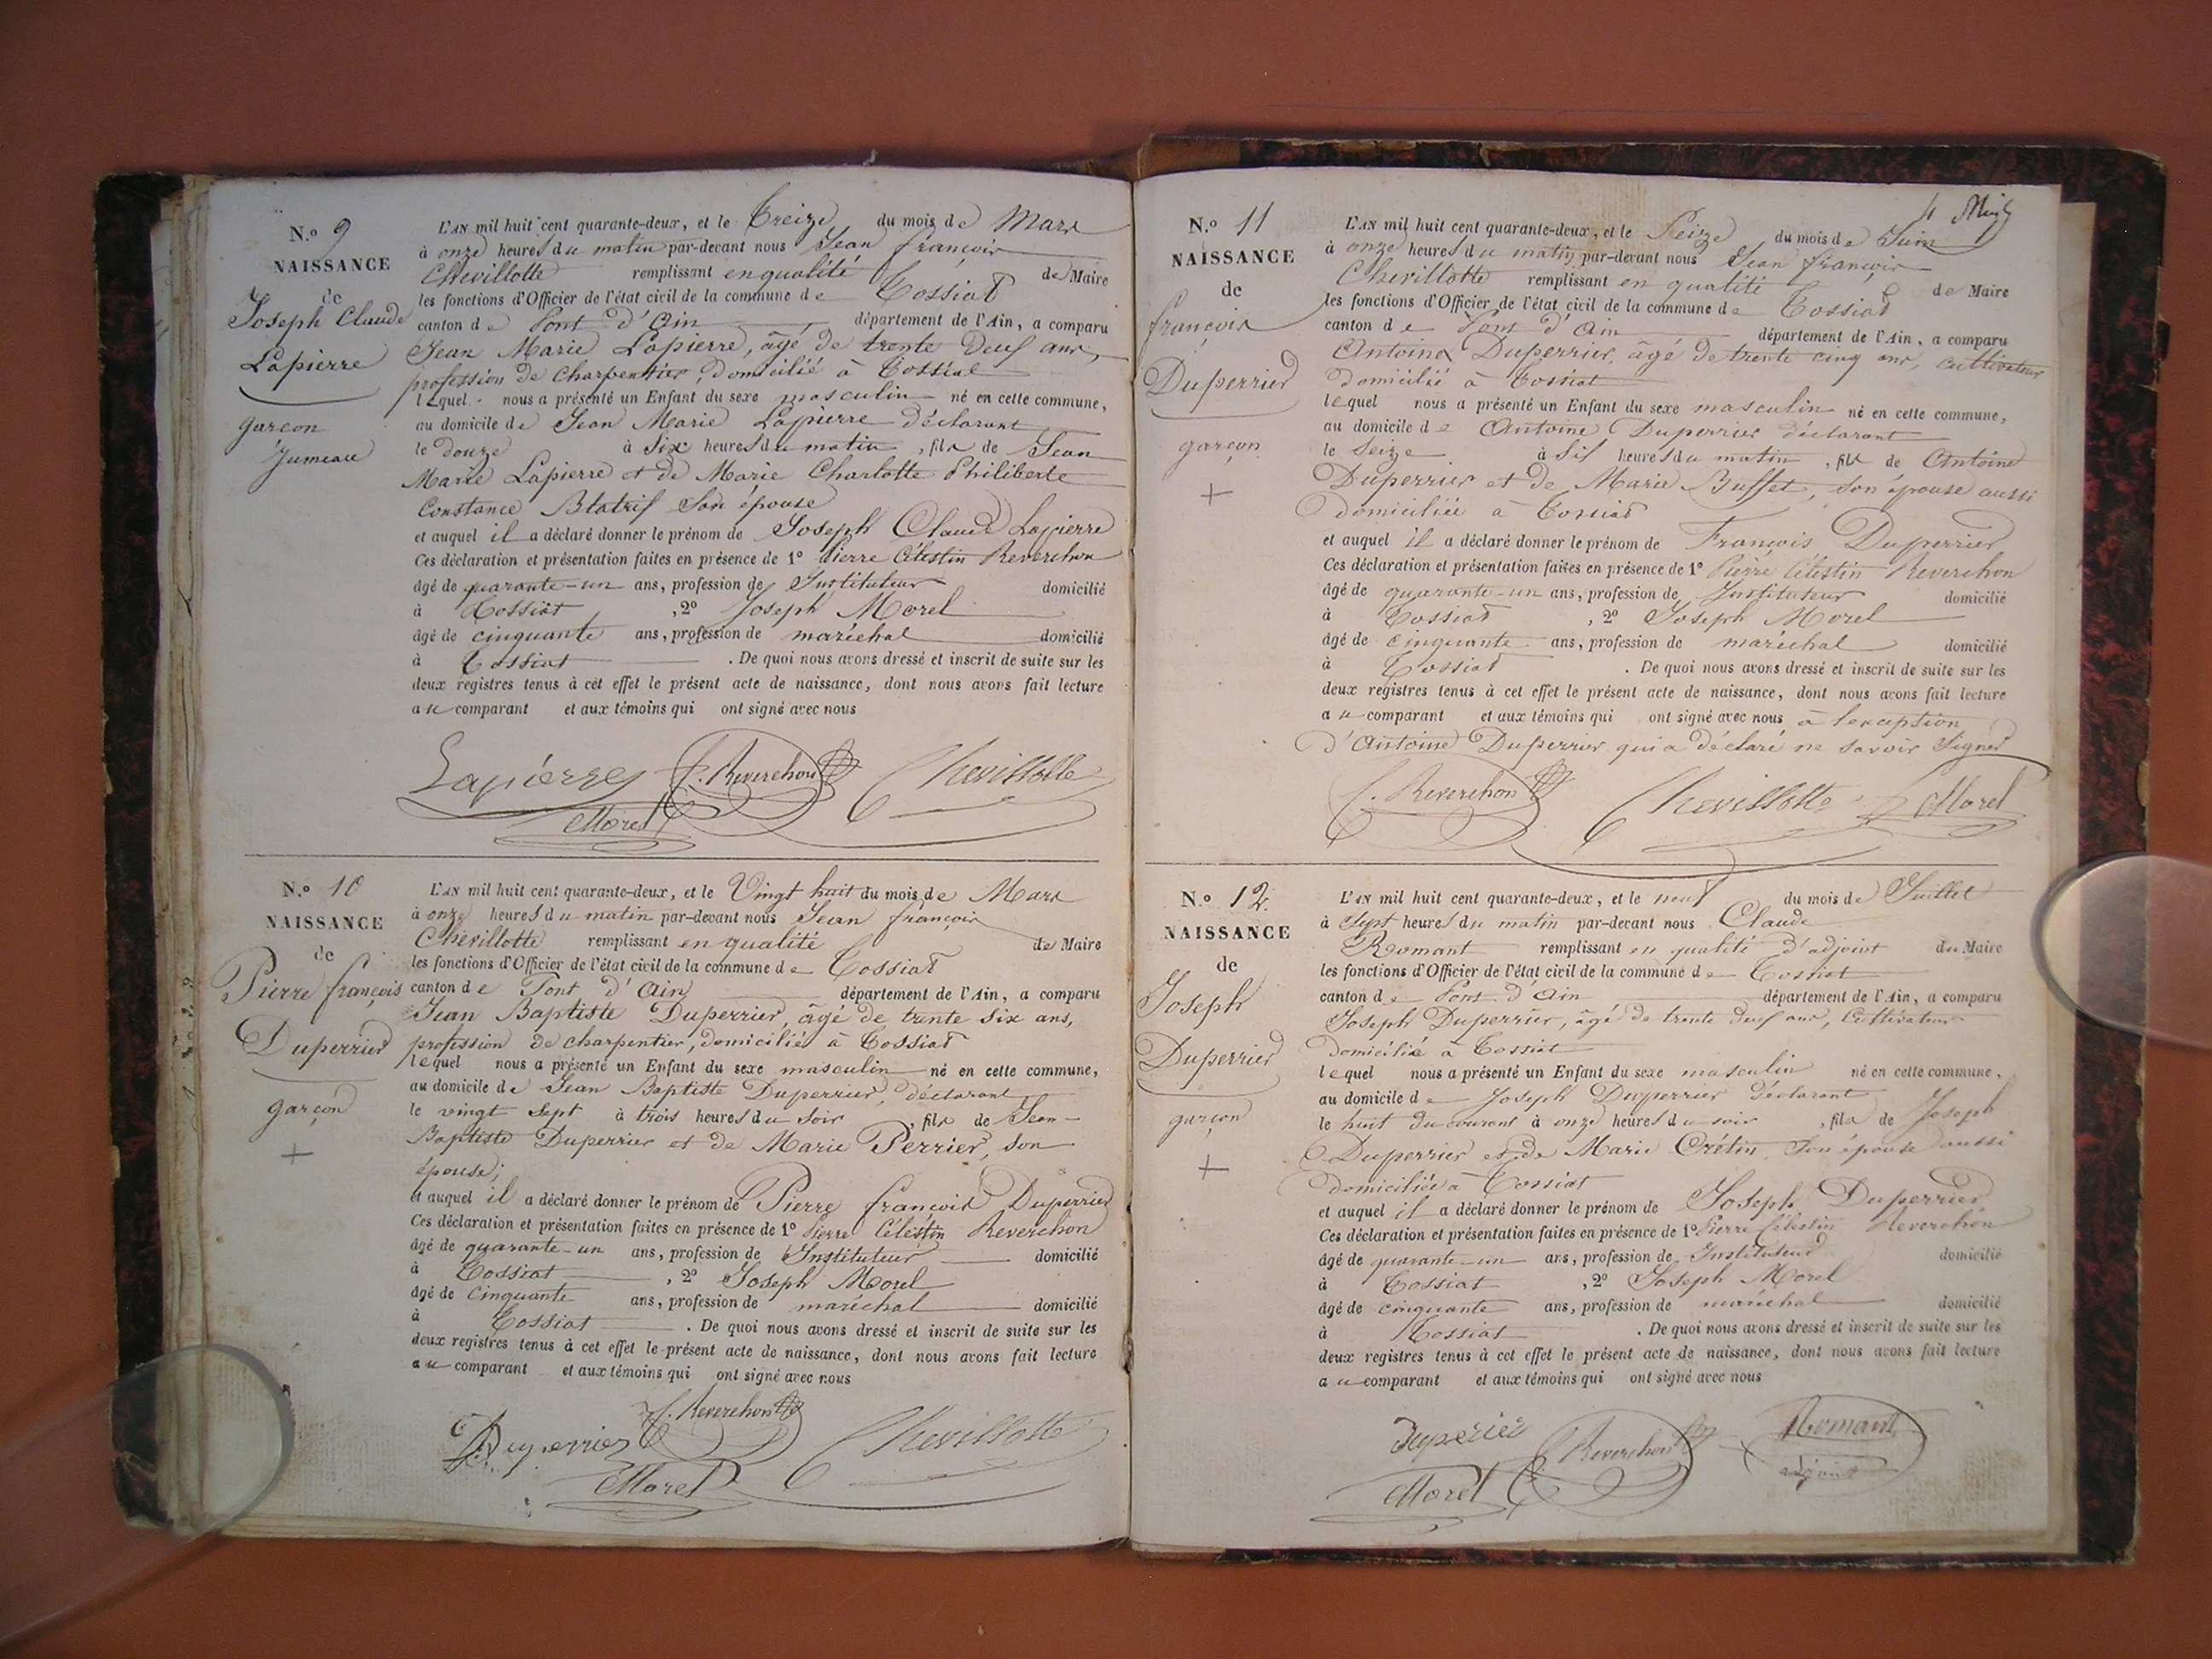 N.º 9
NAISSANCE
de
Joseph Claude
Lapierre
garçon
Jumeau
L'AN mil huit cent quarante-deux, et le Treize du mois de Mars
à onze heures du matin par-devant nous Jean françois
Chevillotte remplissant en qualité de Maire
les fonctions d'Officier de l'état civil de la commune de Tossiat
canton de Pont d'Ain département de l'Ain, a comparu
Jean Marie Lapierre, âgé de trente deux ans,
profession de charpentier, domicilié à Tossiat
lequel nous a présenté un Enfant du sexe masculin né en cette commune,
au domicile de Jean Marie Lapierre déclarant
le douze à six heures du matin, fils de Jean
Marie Lapierre et de Marie Charlotte Philiberte
Constance Blatrix son épouse
et auquel il a déclaré donner le prénom de Joseph Claude Lapierre
Ces déclaration et présentation faites en présence de 1º Pierre Célestin Reverchon
âgé de quarante-un ans, profession de Instituteur domicilié
à Tossiat, 2º Joseph Morel
âgé de cinquante ans, profession de maréchal domicilié
à Tossiat. De quoi nous avons dressé et inscrit de suite sur les
deux registres tenus à cet effet le présent acte de naissance, dont nous avons fait lecture
au comparant et aux témoins qui ont signé avec nous
Lapierre C. Reverchon Chevillotte
Morel
N.º 10
NAISSANCE
de
Pierre françois
Duperrier
garçon
+
L'AN mil huit cent quarante-deux, et le Vingt huit du mois de Mars
à onze heures du matin par-devant nous Jean françois
Chevillotte remplissant en qualité de Maire
les fonctions d'Officier de l'état civil de la commune de Tossiat
canton de Pont d'Ain département de l'Ain, a comparu
Jean Baptiste Duperrier, âgé de trente six ans,
profession de charpentier, domicilié à Tossiat
lequel nous a présenté un Enfant du sexe masculin né en cette commune,
au domicile de Jean Baptiste Duperrier, déclarant
le vingt sept à trois heures du soir, fils de Jean
Baptiste Duperrier et de Marie Perrier, son
épouse;
et auquel il a déclaré donner le prénom de Pierre françois Duperrier
Ces déclaration et présentation faites en présence de 1º Pierre Célestin Reverchon
âgé de quarante-un ans, profession de Instituteur domicilié
à Tossiat, 2º Joseph Morel
âgé de cinquante ans, profession de maréchal domicilié
à Tossiat. De quoi nous avons dressé et inscrit de suite sur les
deux registres tenus à cet effet le présent acte de naissance, dont nous avons fait lecture
au comparant et aux témoins qui ont signé avec nous
Duperrier C. Reverchon Chevillotte
Morel
N.º 11
NAISSANCE
de
françois
Duperrier
garçon
+
L'AN mil huit cent quarante-deux, et le Seize du mois de Juin
à onze heures du matin par-devant nous Jean françois
Chevillotte remplissant en qualité de Maire
les fonctions d'Officier de l'état civil de la commune de Tossiat
canton de Pont d'Ain département de l'Ain, a comparu
Antoine Duperrier, âgé de trente cinq ans, cultivateur
domicilié à Tossiat
lequel nous a présenté un Enfant du sexe masculin né en cette commune,
au domicile de Antoine Duperrier déclarant
le Seize à six heures du matin, fils de Antoine
Duperrier et de Marie Buffet, son épouse aussi
domiciliée à Tossiat
et auquel il a déclaré donner le prénom de François Duperrier
Ces déclaration et présentation faites en présence de 1º Pierre Célestin Reverchon
âgé de quarante-un ans, profession de Instituteur domicilié
à Tossiat, 2º Joseph Morel
âgé de cinquante ans, profession de maréchal domicilié
à Tossiat. De quoi nous avons dressé et inscrit de suite sur les
deux registres tenus à cet effet le présent acte de naissance, dont nous avons fait lecture
au comparant et aux témoins qui ont signé avec nous à l'exception
d'Antoine Duperrier qui a déclaré ne savoir signer
C. Reverchon Chevillotte Morel
N.º 12.
NAISSANCE
de
Joseph
Duperrier
garçon
+
L'AN mil huit cent quarante-deux, et le neuf du mois de Juillet
à sept heures du matin par-devant nous Claude
Romant remplissant en qualité d'adjoint du Maire
les fonctions d'Officier de l'état civil de la commune de Tossiat
canton de Pont d'Ain département de l'Ain, a comparu
Joseph Duperrier, âgé de trente deux ans, Cultivateur
domicilié à Tossiat
lequel nous a présenté un Enfant du sexe masculin né en cette commune,
au domicile de Joseph Duperrier déclarant
le huit du courant à onze heures du soir, fils de Joseph
Duperrier et de Marie Crétin son épouse aussi
domiciliée à Tossiat
et auquel il a déclaré donner le prénom de Joseph Duperrier
Ces déclaration et présentation faites en présence de 1º Pierre Célestin Reverchon
âgé de quarante-un ans, profession de Instituteur domicilié
à Tossiat, 2º Joseph Morel
âgé de cinquante ans, profession de maréchal domicilié
à Tossiat. De quoi nous avons dressé et inscrit de suite sur les
deux registres tenus à cet effet le présent acte de naissance, dont nous avons fait lecture
au comparant et aux témoins qui ont signé avec nous
Duperier C. Reverchon Romant
Morel adjoint